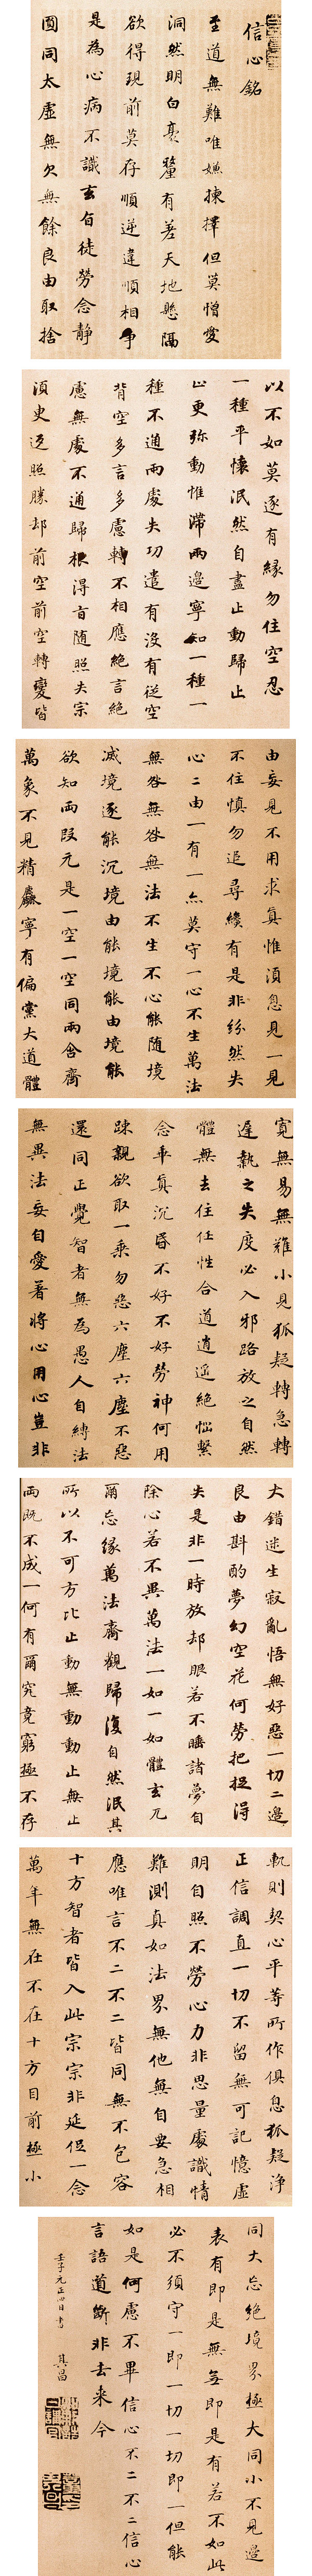 信心銘
至道無難唯嫌揀擇但莫憎愛
洞然明白毫釐有差天地懸隔
欲得現前莫存順逆違順相爭
是為心病不識玄旨徒勞念静
圓同太虛無欠無餘良由取捨
所以不如莫逐有緣勿住空忍
一種平懷泯然自盡止動歸止
止更弥動惟滯兩邊寧知一種一
種不通兩處失功遣有沒有從空
背空多言多慮轉不相應絕言絕
慮無處不通歸根得旨随照失宗
須臾返照勝却前空前空轉變皆
由妄見不用求真惟須息見一見
不住慎勿追尋纔有是非紛然失
心二由一有一亦莫守一心不生萬法
無咎無咎無法不生不心能随境
滅境逐能沉境由能境能由境能
欲知兩段元是一空一空同兩含齊
萬象不見精麤寧有偏黨大道體
寬無易無難小見狐疑轉急轉
遲執之失度必入邪路放之自然
體無去住任性合道逍遥絕惱繫
念乖真沉昏不好不好勞神何用
疎親欲取一乘勿惡六塵六塵不惡
還同正覺智者無為愚人自縛法
無異法妄自愛著將心用心豈非
大錯迷生寂亂悟無好惡一切二邊
良由斟酌夢幻空花何勞把捉得
失是非一時放却眼若不睡諸夢自
除心若不異萬法一如一如體玄兀
爾忘緣萬法齊觀歸復自然泯其
所以不可方比止動無動動止無止
兩既不成一何有爾究竟窮極不存
軌則契心平等所作俱息狐疑淨
正信調直一切不留無可記憶虛
明自照不勞心力非思量處識情
難測真如法界無他無自要急相
應唯言不二不二皆同無不包容
十方智者皆入此宗宗非延促一念
萬年無在不在十方目前極小
同大忘絕境界極大同小不見邊
表有即是無無即是有若不如此
必不須守一即一切一切即一但能
如是何慮不畢信心不二不二信心
言語道斷非去來今
壬子元正四日書 其昌